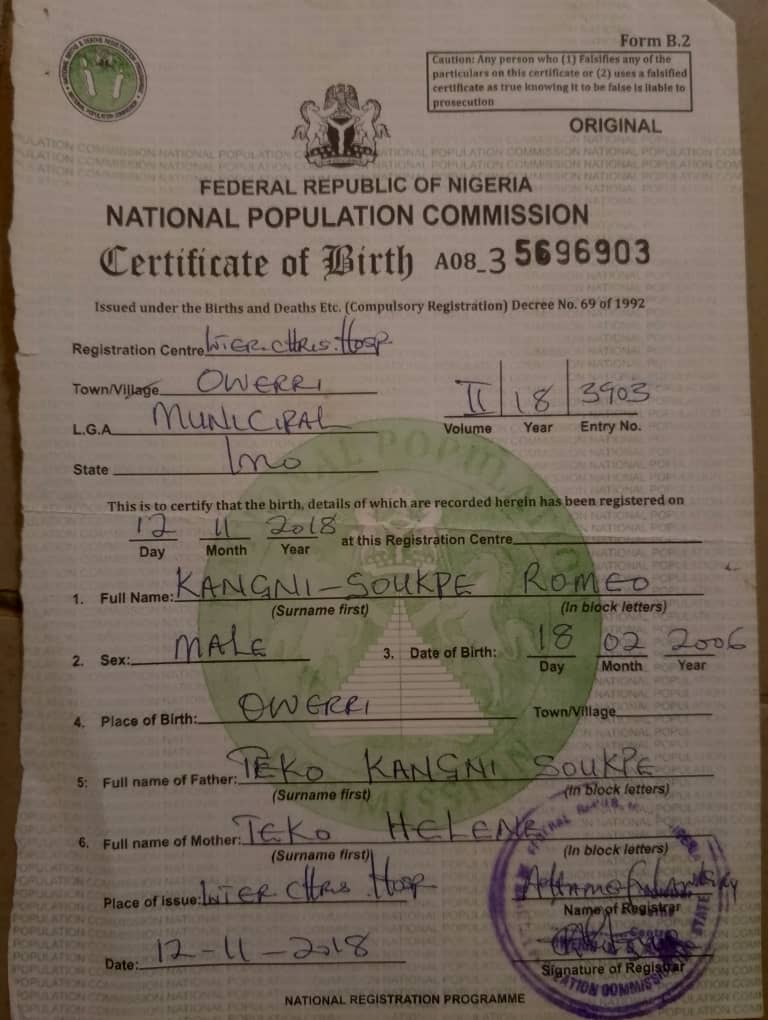 Form B.2
Caution: Any person who (1) Falsifies any of the
particulars on this certificate or (2) uses a falsified
certificate as true knowing it to be false is liable to
prosecution
ORIGINAL
FEDERAL REPUBLIC OF NIGERIA
NATIONAL POPULATION COMMISSION
Certificate of Birth A08_3 5696903
Issued under the Births and Deaths Etc. (Compulsory Registration) Decree No. 69 of 1992
Registration Centre INTER. CHRIS. HOSP.
Town/Village OWERRI
L.G.A MUNICIPAL
II 18 3903
Volume Year Entry No.
State Imo
This is to certify that the birth, details of which are recorded herein has been registered on
12 11 2018 at this Registration Centre
Day Month Year
1. Full Name: KANGNI-SOUKPE ROMEO
(Surname first) (In block letters)
2. Sex: MALE 3. Date of Birth: 18 02 2006
Day Month Year
4. Place of Birth: OWERRI Town/Village
5: Full name of Father: TEKO KANGNI SOUKPE
(Surname first) (In block letters)
6. Full name of Mother: TEKO HELENE
(Surname first) (In block letters)
Place of issue: INTER CHRIS HOSP
Name of Registrar
Date: 12-11-2018
Signature of Registrar
NATIONAL REGISTRATION PROGRAMME